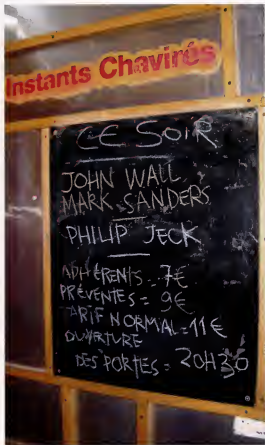 Instants Chavirés
CE SOIR
JOHN WALL
MARK SANDERS
PHILIP JECK
ADHÉRENTS = 7€
PRÉVENTES = 9€
TARIF NORMAL = 11€
OUVERTURE
DES PORTES = 20H30